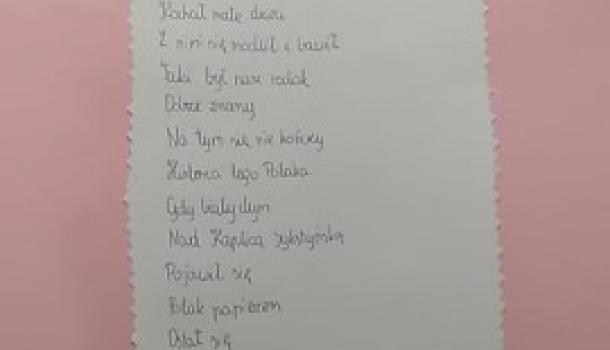 Kochał małe dzieci
Z nimi się modlił i bawił
Taki był nasz rodak
Dobrze znany
Na tym się nie kończy
Historia tego Polaka
Gdy biały dym
Nad Kaplicą Sykstyńską
Pojawił się
Polak papieżem
Ostał się